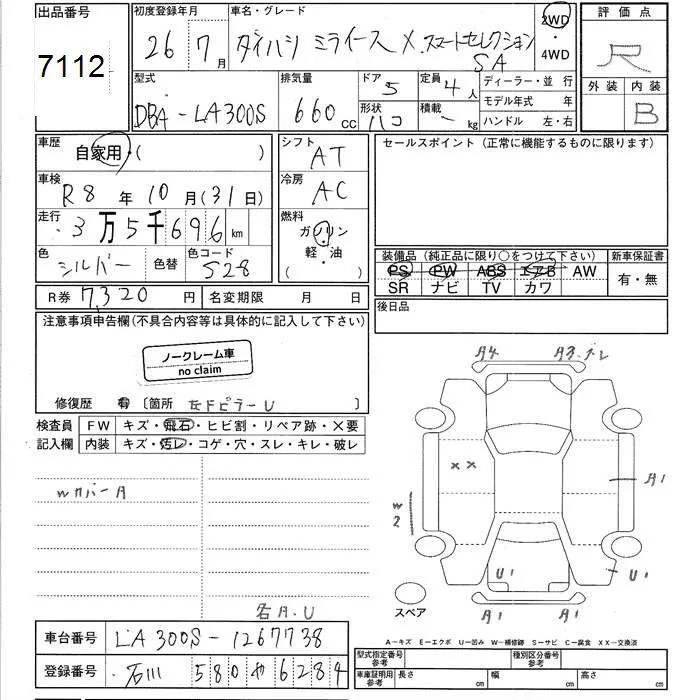 出品番号
7112
初度登録年月
26年 7月
車名・グレード
ダイハツ ミライース X スマートセレクション
SA
2WD
・
4WD
評価点
R
外装 内装
B
型式
DBA-LA300S
排気量
660 cc
ドア 5
形状 ハコ
定員 4人
積載 - kg
ディーラー・並行
モデル年式 年
ハンドル 左・右
車歴
自家用・( )
車検
R8年 10月(31日)
走行
3万5千696 km
色
シルバー
色替
色コード
S28
R券 7,320 円
名変期限 月 日
シフト
AT
冷房
AC
燃料
ガソリン
軽・油
( )
セールスポイント(正常に機能するものに限ります)
装備品(純正品に限り○をつけて下さい)
新車保証書
PS PW ABS エアB AW
SR ナビ TV カワ
有・無
後日品
注意事項申告欄(不具合内容等は具体的に記入して下さい)
ノークレーム車
no claim
修復歴 有 〔箇所 左FピラーU 〕
検査員
記入欄
FW キズ・飛石・ヒビ割・リペア跡・×要
内装 キズ・汚レ・コゲ・穴・スレ・キレ・破レ
Wカバー A
各A.U
A4
A3.ズレ
××
W
2
A1
U1
U1
A1
A1
スペア
A-キズ E-エクボ U-凹み W-補修跡 S-サビ C-腐食 XX-交換済
車台番号
LA300S-1267738
登録番号
石川 580 や 6284
型式指定番号
参考
種別区分番号
参考
車庫証明用
参考
長さ cm
幅 cm
高さ cm